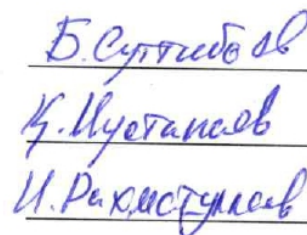 Б. Суттибаев
Қ. Мустапаев
И. Рахматуллаев